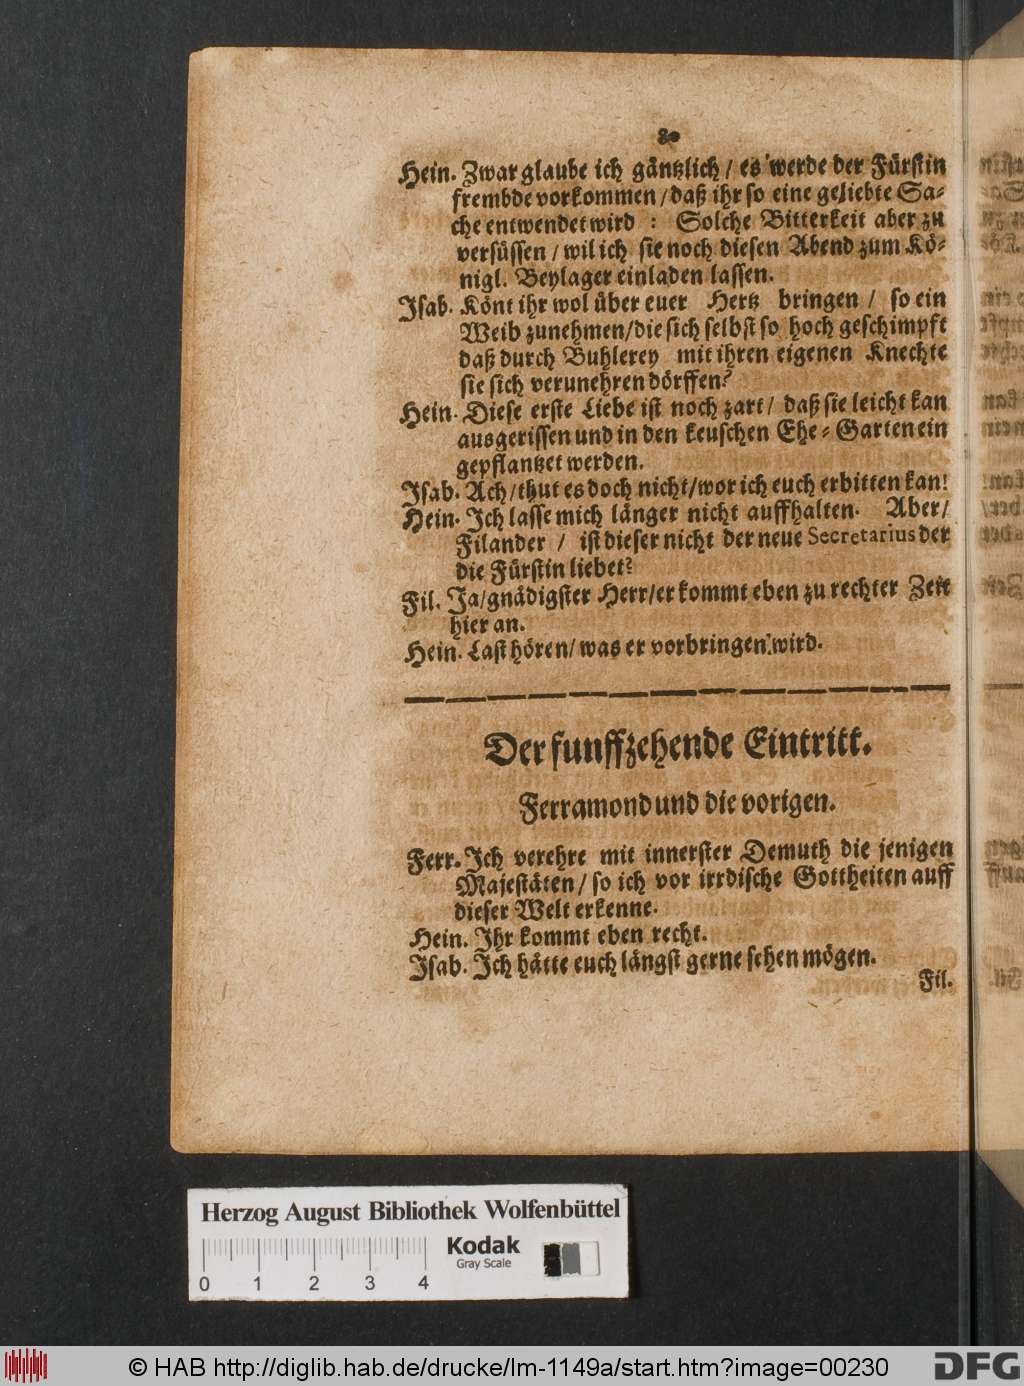 80
Hein. Zwar glaube ich gäntzlich / es werde der Fürstin
frembde vorkommen / daß ihr so eine geliebte Sa-
che entwendet wird : Solche Bitterkeit aber zu
versüssen / wil ich sie noch diesen Abend zum Kö-
nigl. Beylager einladen lassen.
Isab. Könt ihr wol über euer Hertz bringen / so ein
Weib zunehmen/die sich selbst so hoch geschimpft
daß durch Buhlerey mit ihren eigenen Knechte
sie sich verunehren dörffen?
Hein. Diese erste Liebe ist noch zart / daß sie leicht kan
ausgerissen und in den keuschen Ehe-Garten ein
gepflantzet werden.
Isab. Ach/thut es doch nicht/wor ich euch erbitten kan!
Hein. Ich lasse mich länger nicht auffhalten. Aber/
Filander / ist dieser nicht der neue Secretarius der
die Fürstin liebet?
Fil. Ja/gnädigster Herr/er kommt eben zu rechter Zeit
hier an.
Hein. Last hören/ was er vorbringen wird.
Der funffzehende Eintritt.
Ferramond und die vorigen.
Ferr. Ich verehre mit innerster Demuth die jenigen
Majestäten / so ich vor irrdische Gottheiten auff
dieser Welt erkenne.
Hein. Ihr kommt eben recht.
Isab. Ich hätte euch längst gerne sehen mögen.
Fil.
Herzog August Bibliothek Wolfenbüttel
Kodak
Gray Scale
0 1 2 3 4
© HAB http://diglib.hab.de/drucke/lm-1149a/start.htm?image=00230
DFG